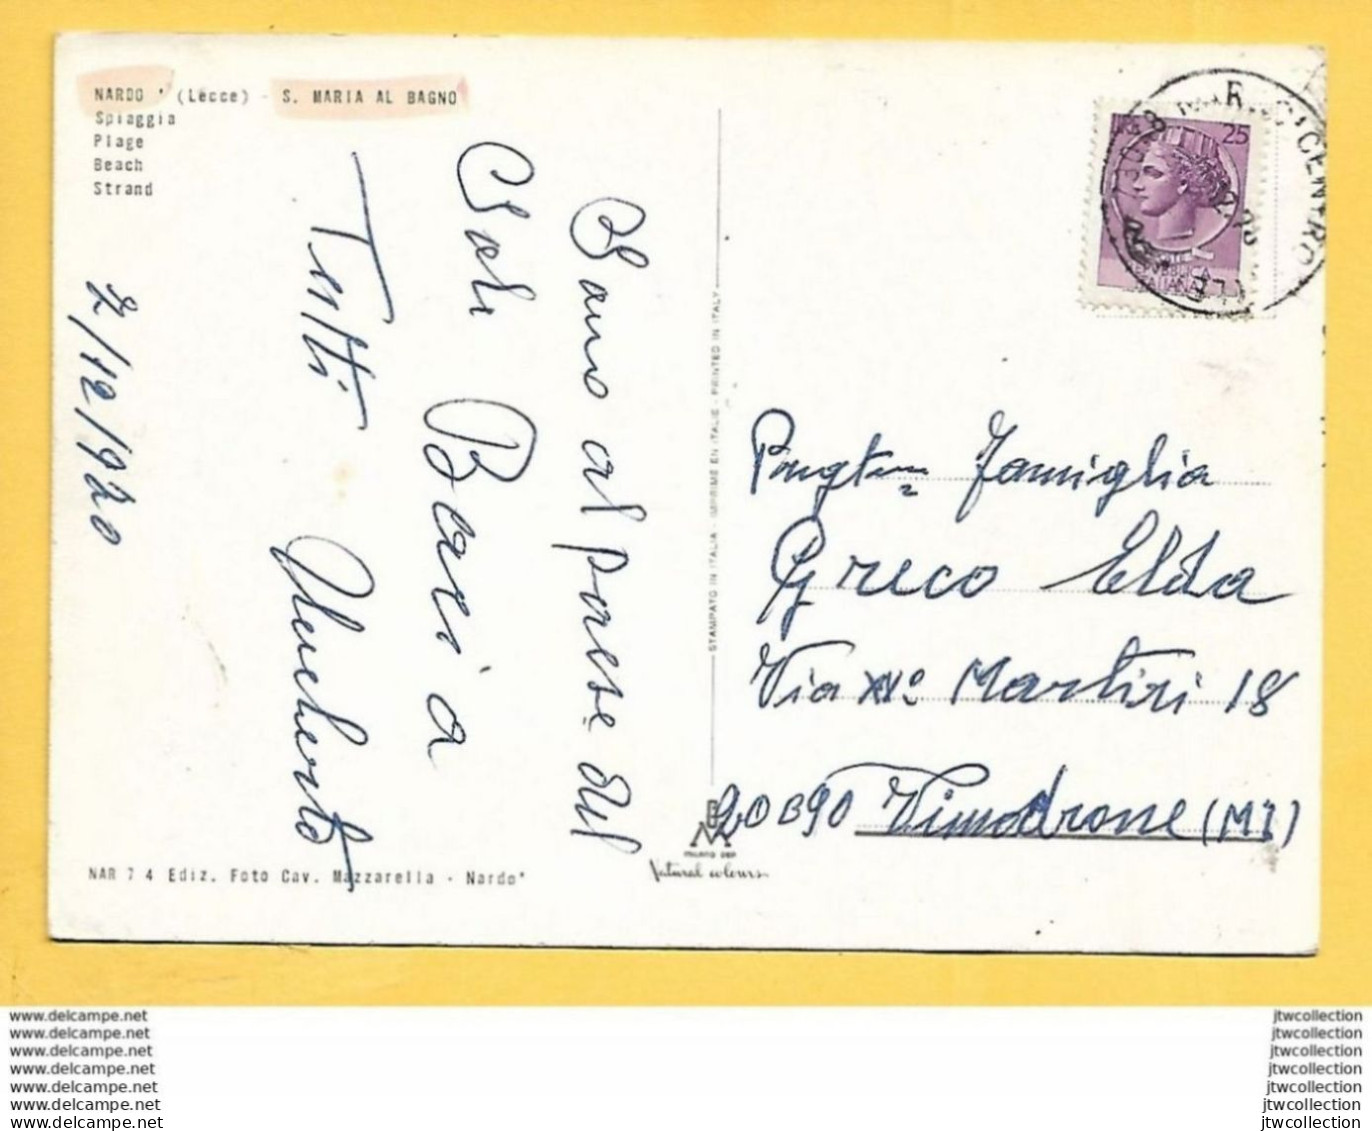 NARDO' (Lecce) - S. MARIA AL BAGNO
Spiaggia
Plage
Beach
Strand
2/12/920
Sono al paese del
Sole Baci a
Tutti Umberto
STAMPATO IN ITALIA - IMPRIME EN ITALIE - PRINTED IN ITALY
LIRE 25
REPUBBLICA
ITALIANA
CENTRO
Famiglia
Greco Elda
Via XV° Martiri 18
20090 Vimodrone (MI)
MILANO
Natural colours
NAR 7 4 Ediz. Foto Cav. Mazzarella - Nardo'
www.delcampe.net
www.delcampe.net
www.delcampe.net
www.delcampe.net
www.delcampe.net
www.delcampe.net
www.delcampe.net
jtwcollection
jtwcollection
jtwcollection
jtwcollection
jtwcollection
jtwcollection
jtwcollection